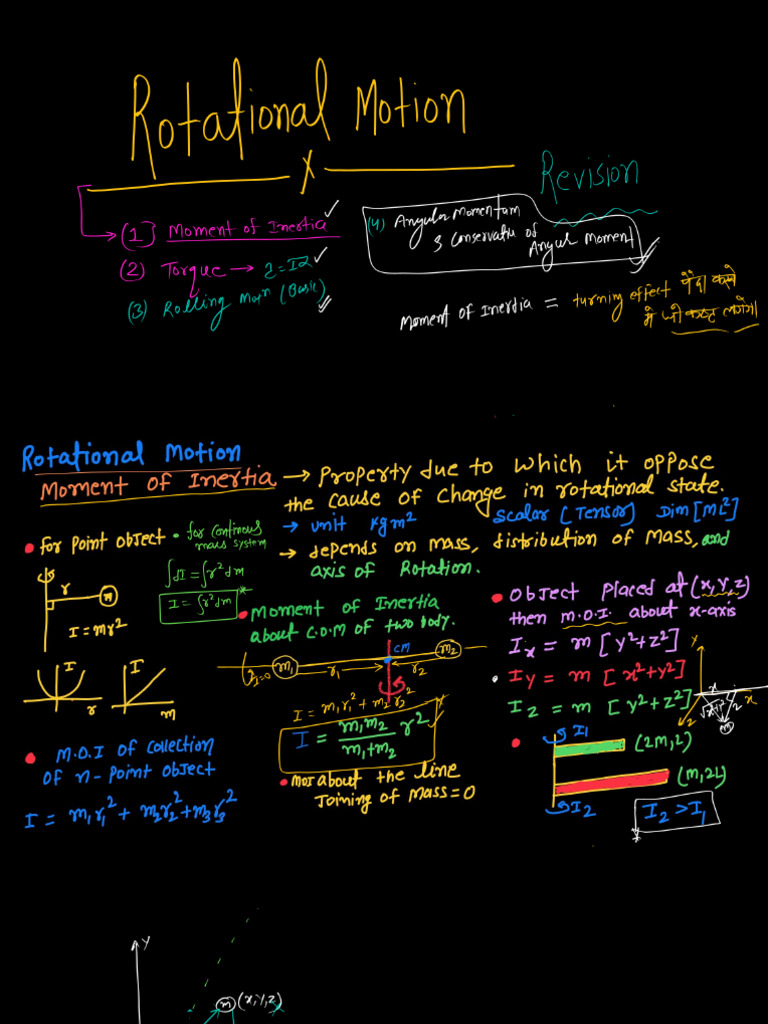 Rotational Motion
Revision
(1) Moment of Inertia
(2) Torque → τ = Iα
(3) Rolling Motn (Basic)
(4) Angular Momentum
& Conservatn of
Angulr Moment
Moment of Inerdia = turning effect पैदा करने
मे जो कष्ट लगेगा
Rotational Motion
Moment of Inertia → Property due to which it oppose
the cause of change in rotational state.
→ unit kgm² Scalar (Tensor) Dim [ML²]
→ depends on mass, distribution of mass, and
axis of Rotation.
• for Point object
r
m
I = mr²
I
r
I
m
• for continous
mass system
∫dI = ∫r²dm
I = ∫r²dm
• Moment of Inertia
about C.O.M of two body.
CM
I=0
m₁
r₁
r₂
m₂
I = m₁r₁² + m₂r₂²
I = m₁m₂/m₁+m₂ r²
• MOI about the line
Joining of mass = 0
• Object placed at (x,y,z)
then M.O.I. about x-axis
Ix = m [y²+z²]
• Iy = m [x²+y²]
Iz = m [y²+z²]
Y
x
x
z
z
m
• M.O.I of collection
of n-point object
I = m₁r₁² + m₂r₂² + m₃r₃²
I₁
(2m, L)
(m, 2L)
I₂
I₂ > I₁
Y
m (x,y,z)